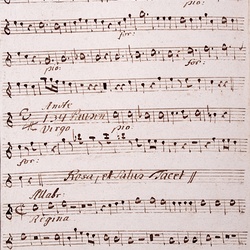 pio:
for:
pio:
for:
Ande
134 Pausen
Virgo
pio:
for:
Rosa, et Salus Tacet
Allabr:
Regina